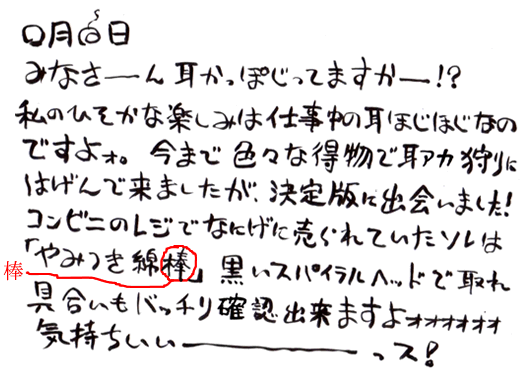 〇月〇日
みなさーーん耳かっぽじってますかー!?
私のひそかな楽しみは仕事中の耳ほじほじなの
ですよォ。今まで色々な得物で耳アカ狩りに
はげんで来ましたが、決定版に出会いました!
コンビニのレジでなにげに売られていたソレは
「やみつき綿棒」黒いスパイラルヘッドで取れ
棒
具合いもバッチリ確認出来ますよォォォォォォ
気持ちいいーーーーーっス!